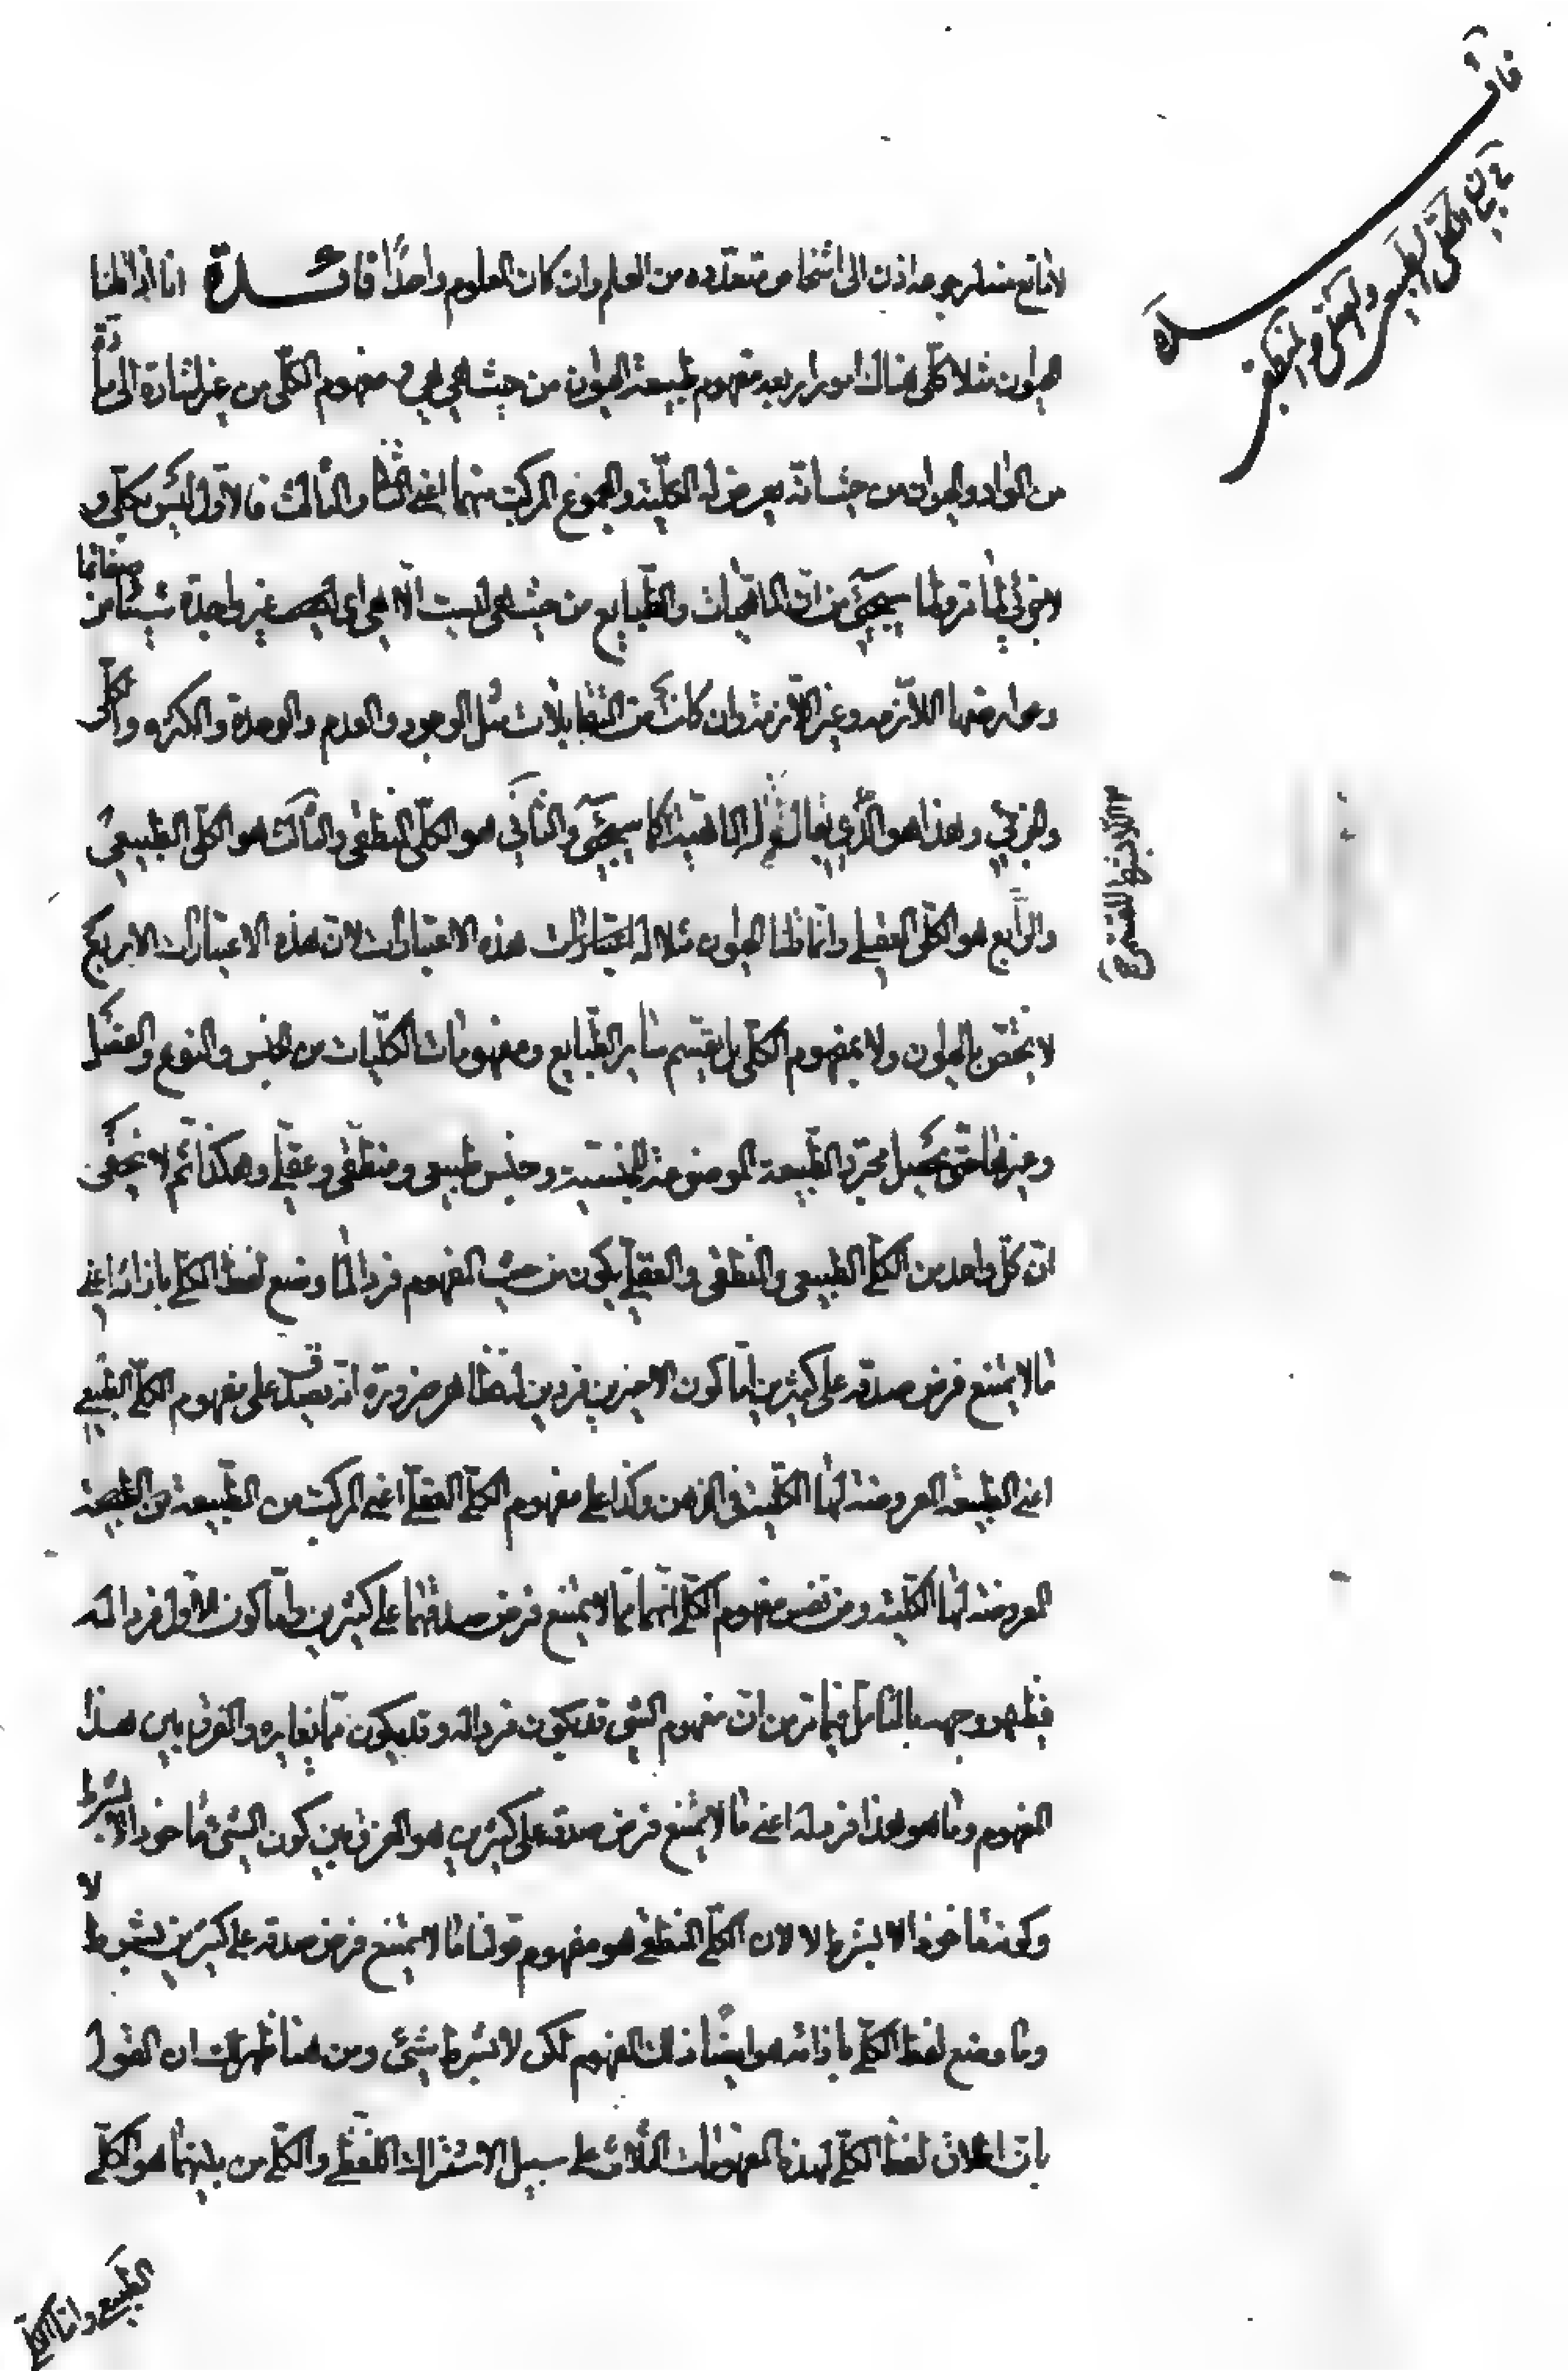 فائدة
في بيان الكلي الطبيعي والعقلي والمنطقي
لامانع عنه لرجوعه اذن الى اشخاص متعدده من العلم وان كان المعلوم واحدًا فائدة انا اذا قلنا
الحيوان مثلا كلّي هناك امور اربعه مفهوم طبيعة الحيوان من حيث هي هي و مفهوم الكلّي من غير اشارة الى مادّة
من المواد والحيوان من حيث انّه يعرض له الكلّية والمجموع المركب منهما اعني الثاني والثالث فالاول ليس بكلّي و
لا جزئي لما مرّ ولما سيجيئ من انّ الماهيّات والطّبايع من حيث هي ليست الّا هي اي ليست غير واجدة شيئا من صفاتها
وعوارضها اللّازمه وغير اللّازمة وان كانت من المتقابلات مثل الوجود والعدم والوحدة والكثره والكلّي
والجزئي وهذا هو الّذي يقال له الماهية كما سيجيئ والثاني هو الكلّي المنطقي والثالث هو الكلّي الطّبيعي
والرّابع هو الكلّي العقلي وانّما قلنا الحيوان مثلا له اعتبارات هذه الاعتبارات لان هذه الاعتبارات الاربع
لا يختصّ بالحيوان ولا بمفهوم الكلّي بل يقسم ساير الطّبايع ومفهومات الكلّيات من الجنس والنوع والفصل
وغيرها حتّى يحصل مجرّد الطّبيعة الموضوعة للجنسية وجنس طبيعي ومنطقي وعقلي وهكذا ثم لا يخفى
انّ كلّ واحد من الكلّي الطبيعي والمنطقي والعقلي يكون من حيث المفهوم فردا لما وضع لفظ الكلّي بازائه اعني
ما لا يمتنع فرض صدقه على كثيرين امّا كون الاخيرين فردين له فظاهر ضرورة انّه يصدق على مفهوم الكلّي الطّبيعي
اعني الطّبيعة المعروضة لها الكلّية في الذهن وكذا على مفهوم الكلّي العقلي اعني المركب من الطّبيعة
المعروضة لها الكلّية ومن نفس مفهوم الكلّي انّهما ممّا لا يمتنع فرض صدقهما على كثيرين وامّا كون الاوّل فردا له
فيظهر وجهه بالتامّل فيما مرّ من انّ مفهوم الشئ قد يكون فردا له وقد يكون ممّا يغايره والفرق بين هذا
المفهوم وما هو هذا فرد له اعني ما لا يمتنع فرض صدقه على كثيرين هو الفرق بين كون الشئ ماخوذا لا بشرط
وكونه ماخوذا بشرط لا لان الكلّي المنطقي هو مفهوم قولنا ما لا يمتنع فرض صدقه على كثيرين بشرط لا
وما وضع لفظ الكلّي بازائه هو ايضا ذلك المفهوم لكن لا بشرط شيئ ومن هنا ظهر لك ان القول
بانّ اطلاق لفظ الكلّي لهذه المفهومات الثلاثة على سبيل الاشتراك اللفظي والكلّي من بينهما هو الكلّي
الطّبيعي وانّما الكلّي